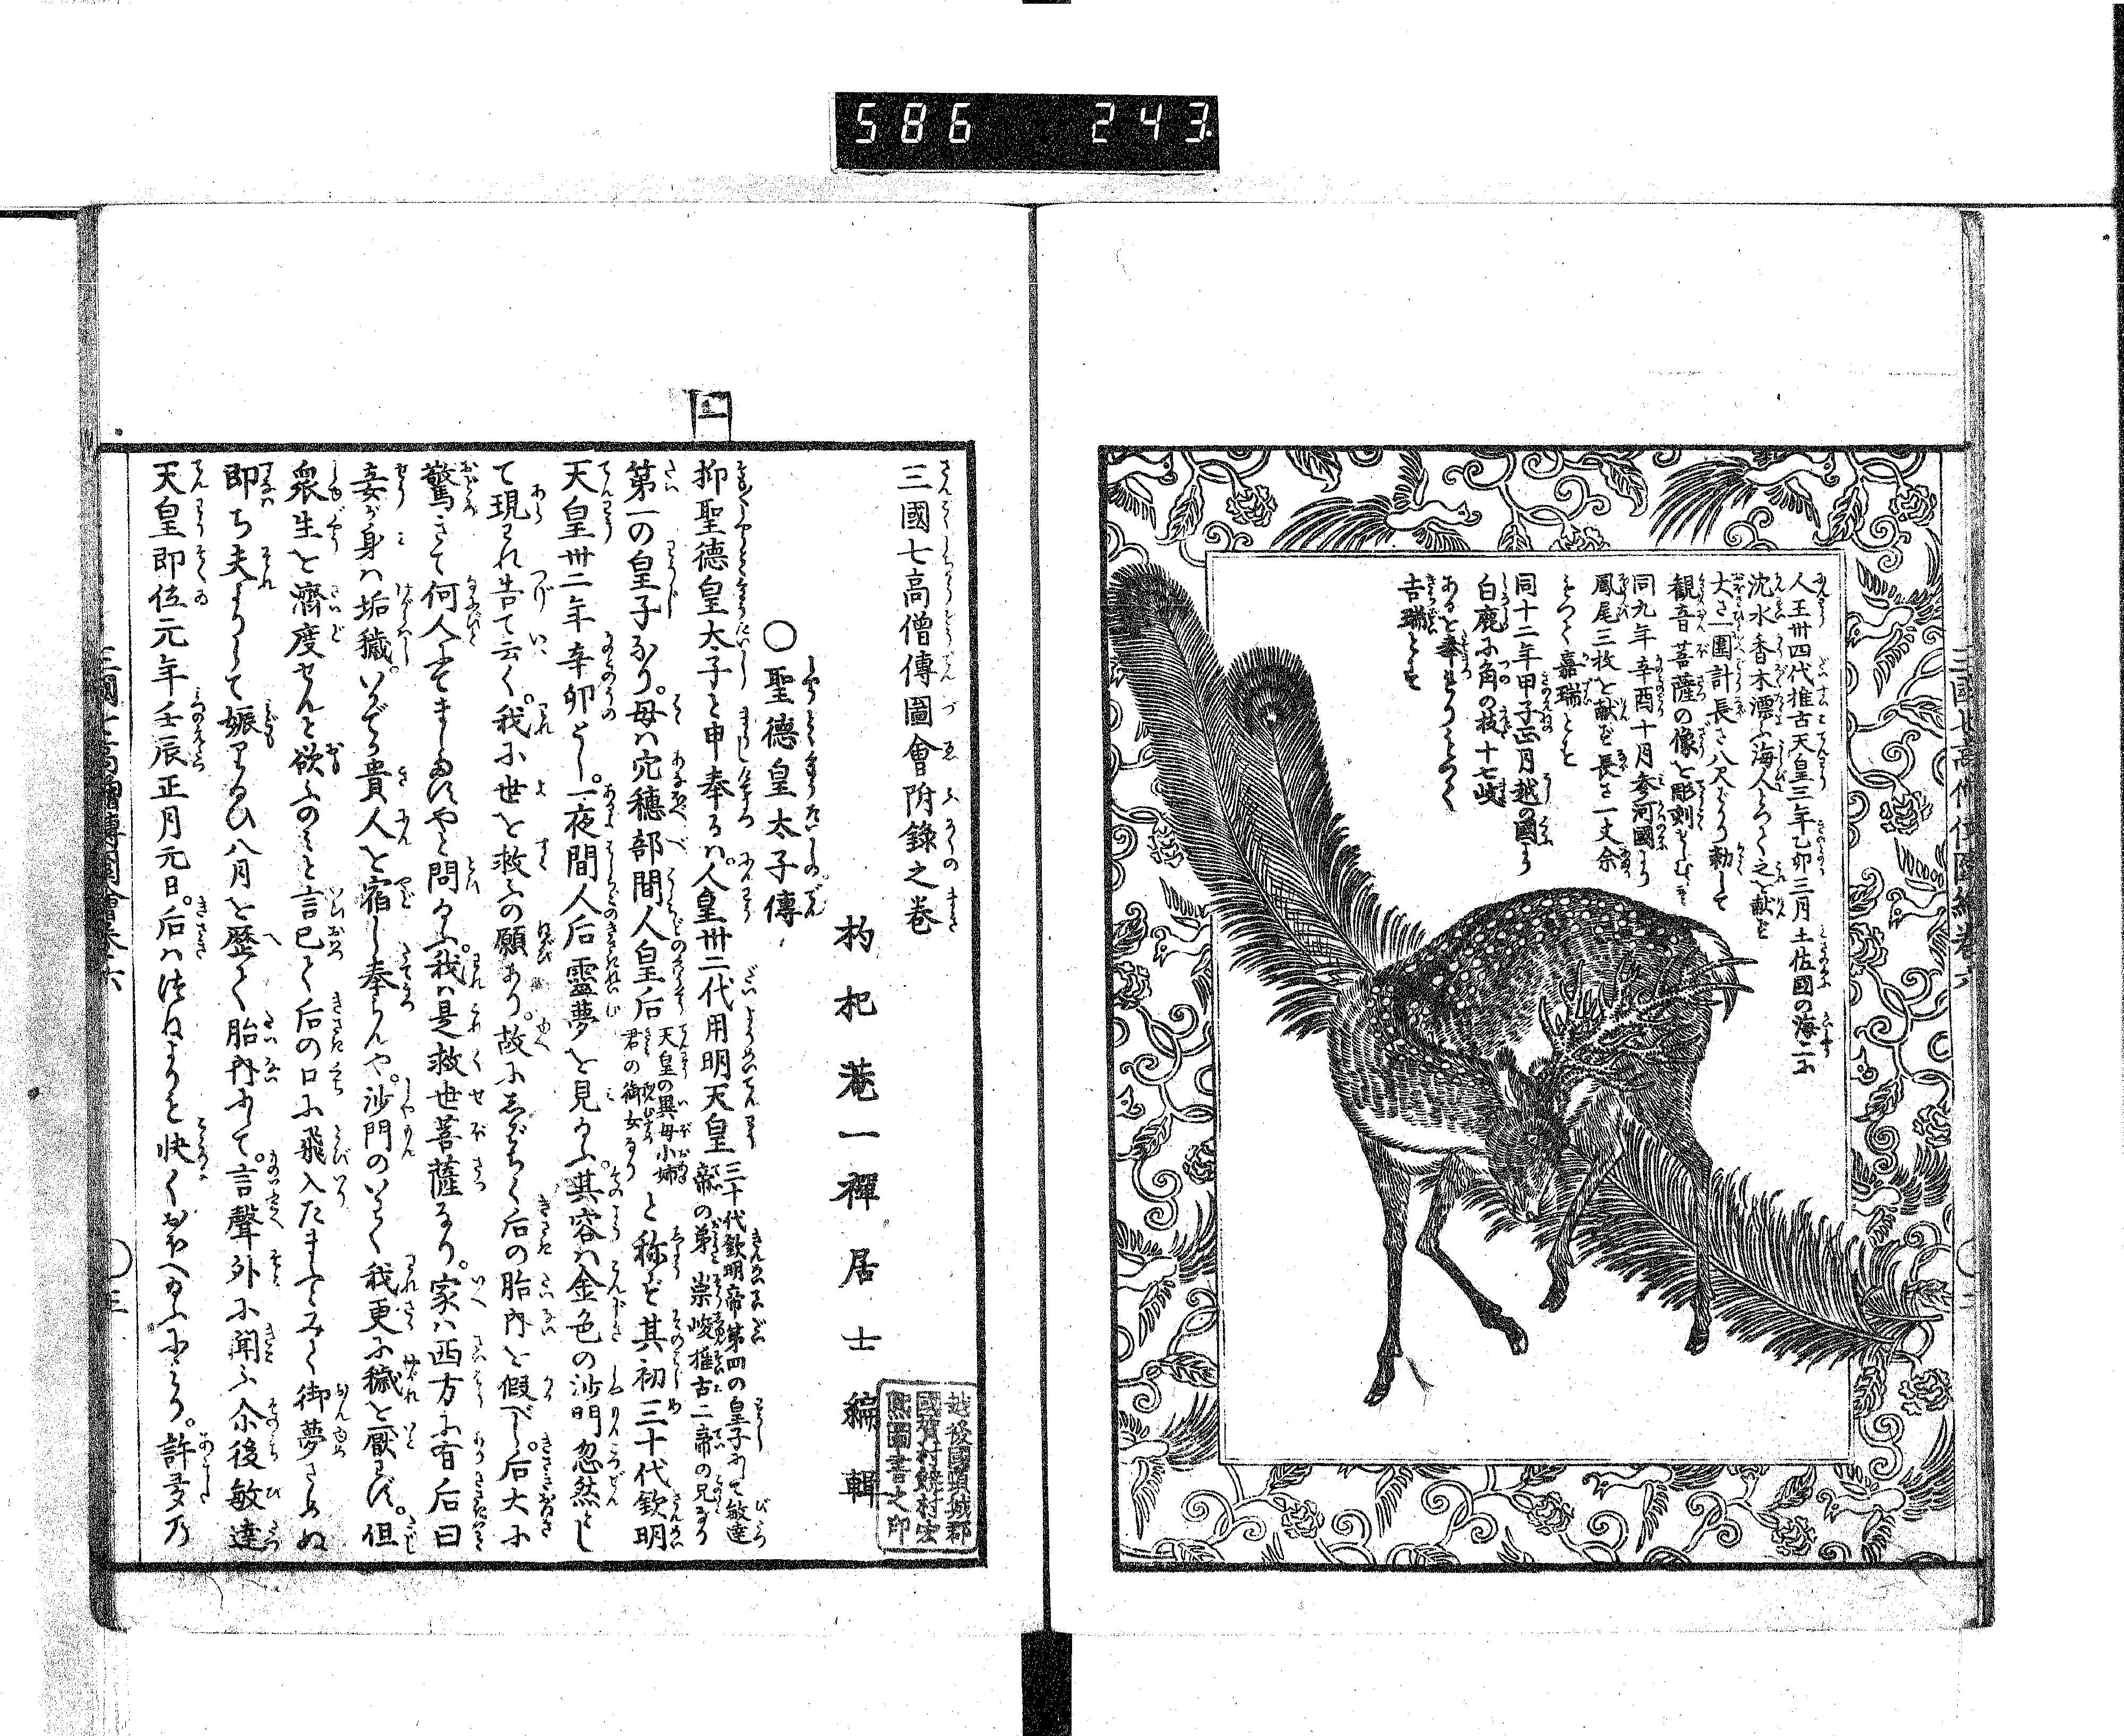 586 243
人王卅四代推古天皇三年乙卯三月土佐國の海上に
沈水香木漂ふ海人とりて之を献ず
大さ一圍計長さ八尺なり勅して
観音菩薩の像を彫刻せしむ
同九年辛酉十月参河國より
鳳尾三枚を献ず長さ一丈余
もつて嘉瑞とす
同十二年甲子正月越の國より
白鹿に角の枝十七岐
あるを奉りもつて
吉瑞とす
三國七高僧傳圖會附錄之巻
杓杞菴一禪居士編輯
○聖德皇太子傳
抑聖德皇太子と申奉るハ人皇卅二代用明天皇三十代欽明帝第四の皇子にて敏達帝の弟崇峻推古二帝の兄なり
第一の皇子なり。母ハ穴穗部間人皇后天皇の異母小姉君の御女なりと称ず其初三十代欽明
天皇卅二年辛卯とし。一夜間人后靈夢を見給ふ。其容ハ金色の沙門忽然とし
て現われ告て云く。我に世を救ふの願あり。故に志ばらく后の胎內を假べし。后大に
驚きて何人にてましますやと問給ふ。我ハ是救世菩薩なり。家ハ西方に有后曰
妾が身ハ垢穢。いかでか貴人を宿し奉らんや。沙門のいはく我更に穢を厭わず。但
衆生を濟度せんと欲ふのミと言已て后の口に飛入たまふとみて御夢さめぬ
即ち夫よりして娠ミ給ひ八月を歷て胎內にて。言聲外に聞ふ尒後敏達
天皇即位元年壬辰正月元日。后ハつねよりも快くおぼへ給ふにより。許多乃
越後國頸城郡